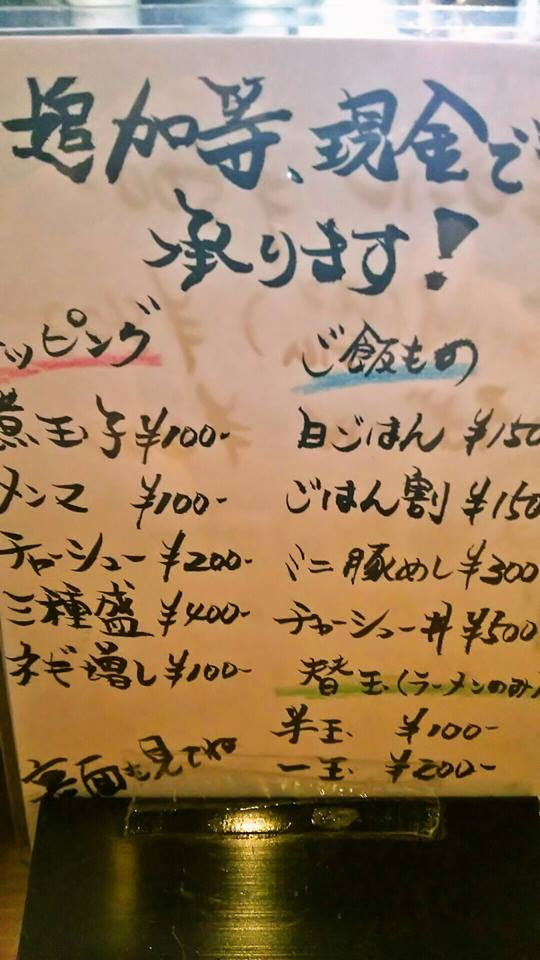 追加等、現金で
承ります!
ッピング
煮玉子 ¥100-
メンマ ¥100-
チャーシュー ¥200-
三種盛 ¥400-
ネギ増し ¥100-
裏面も見てね
ご飯もの
白ごはん ¥150
ごはん割 ¥150
ミニ豚めし ¥300
チャーシュー丼 ¥500
替玉(ラーメンのみ)
半玉 ¥100-
一玉 ¥200-